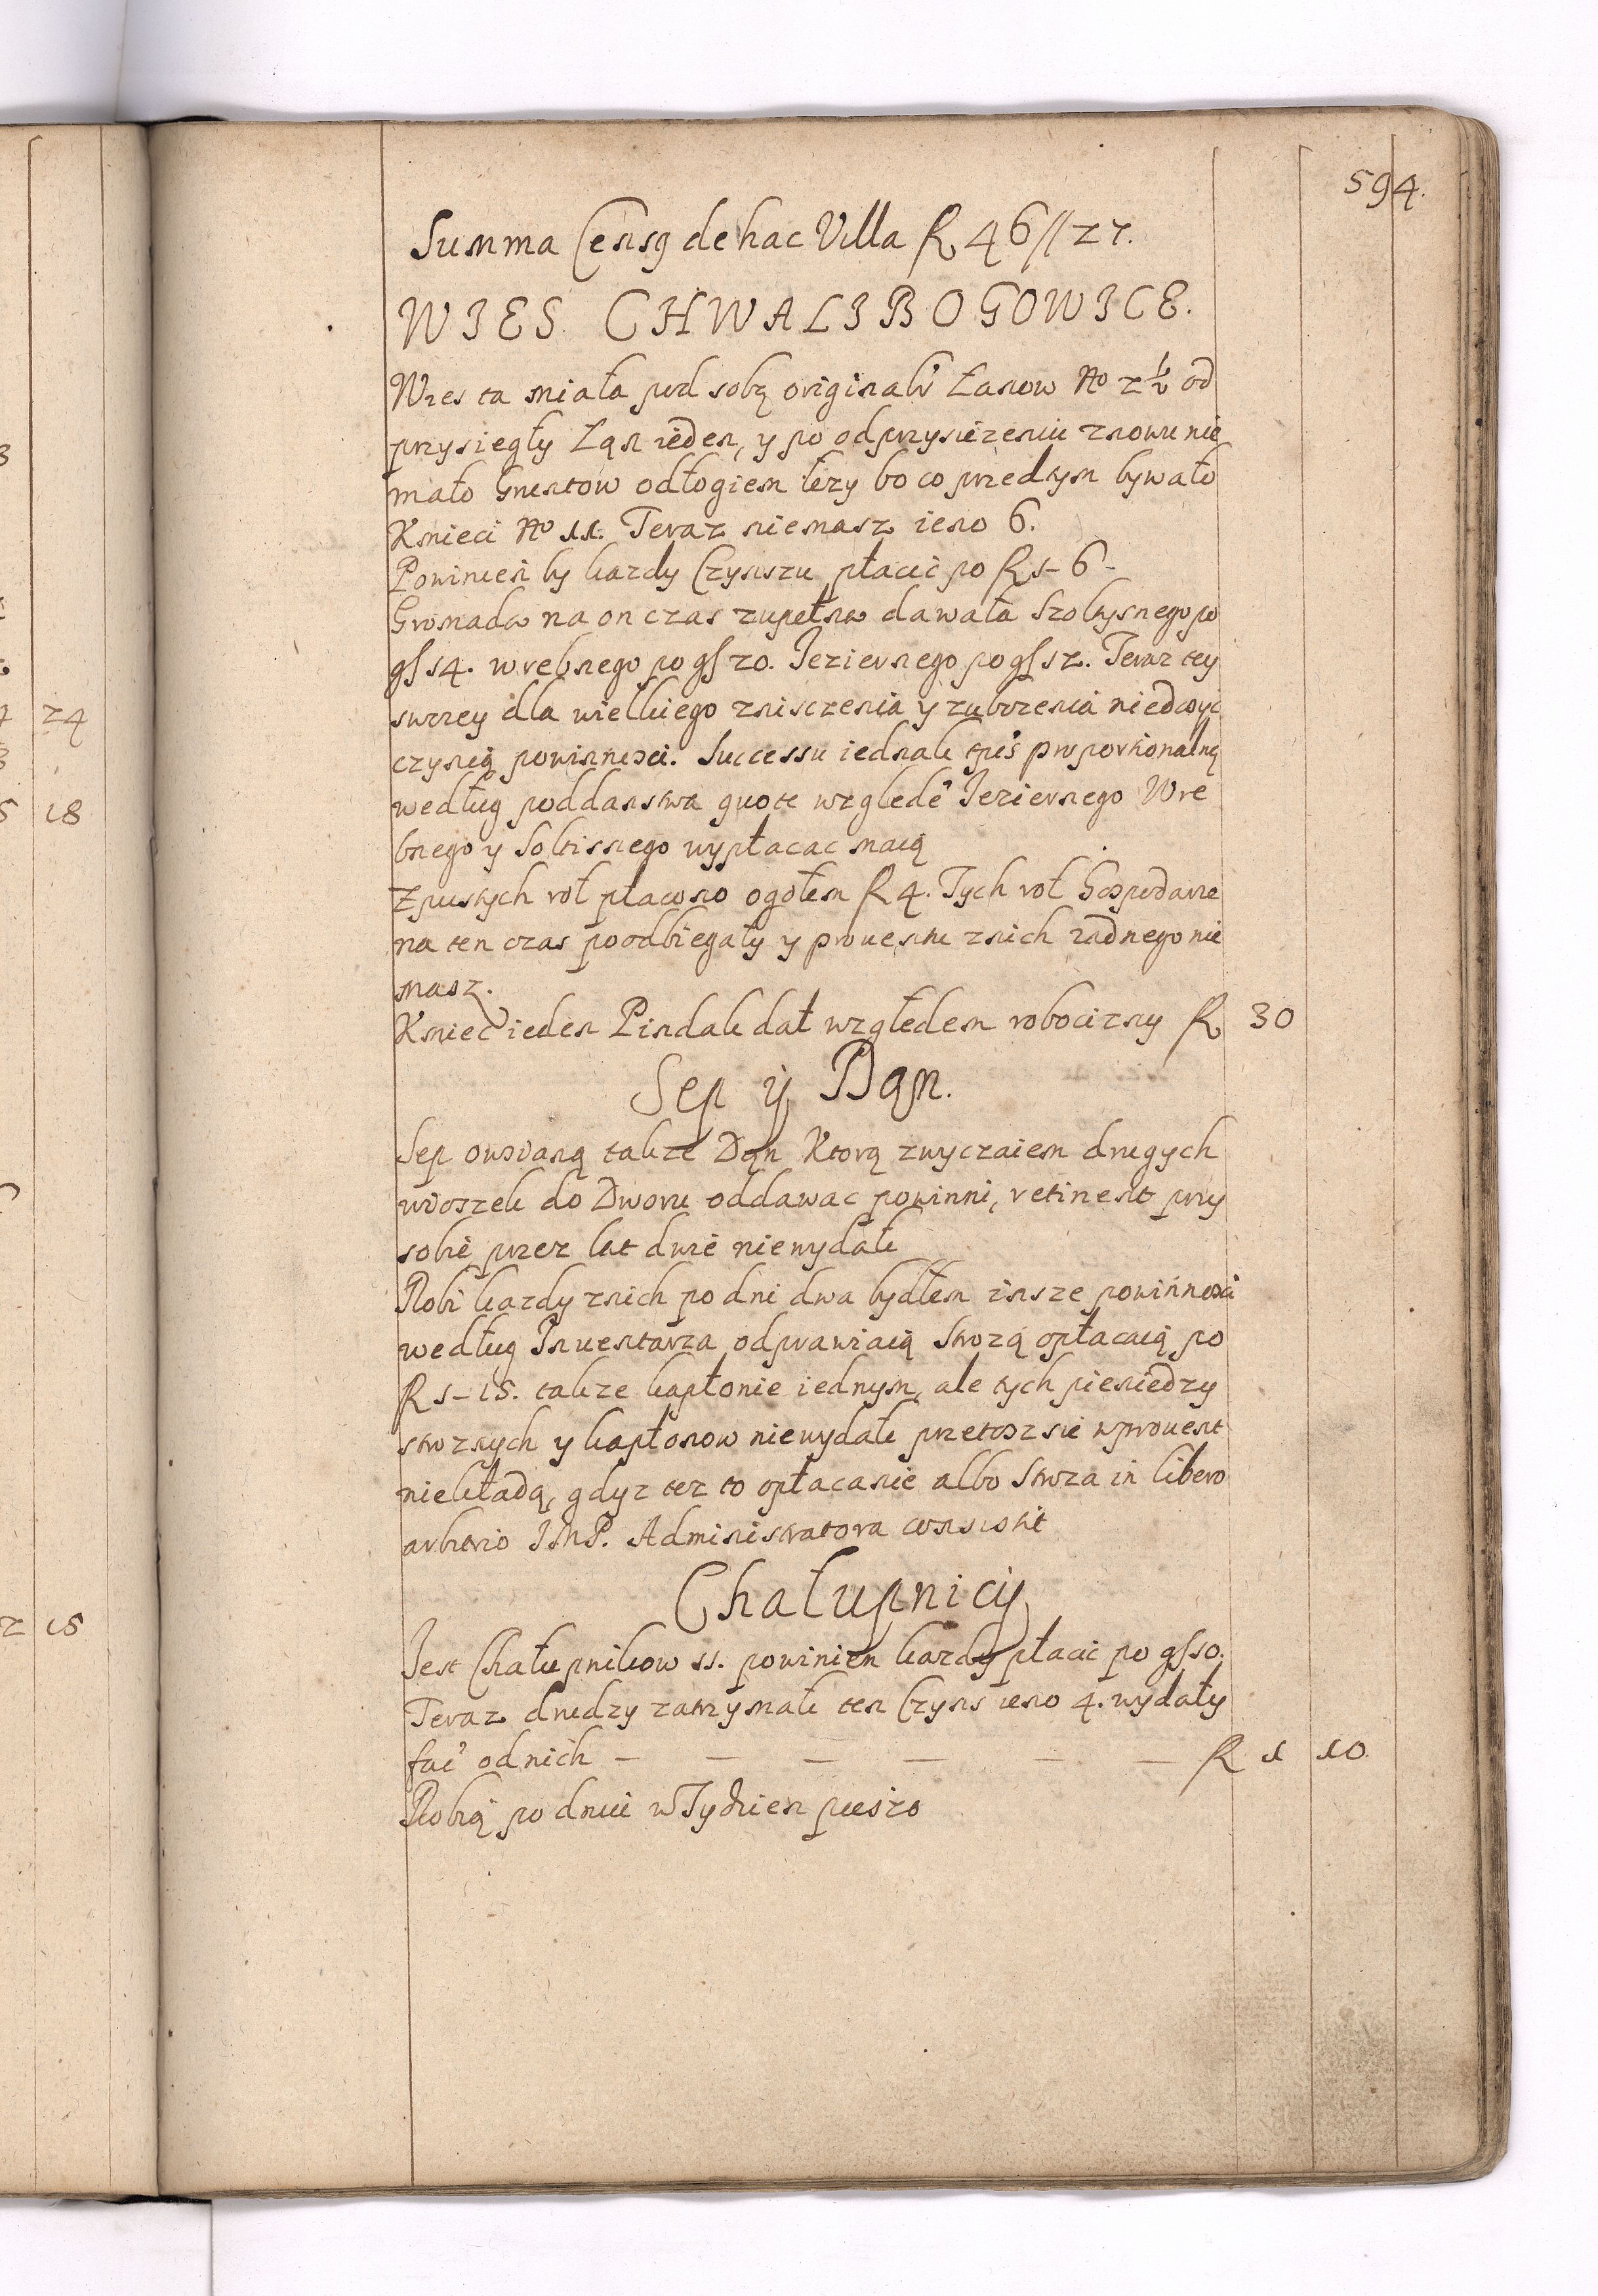 594.
Summa Censq de hac Villa R 46//27.
WIES CHWALIBOGOWICE.
Wies ta miała pod sobą originalr Łanow No 2½ od
przysiegły Łąn ieden, y po odprzysiezeniu znowu nie
mało Gruntow odłogiem lezy bo co przedtym bywało
Kmieci No 11. Teraz niemasz ieno 6.
Powinien by kazdy Czynszu płacić po R 1-6-
Gromada na on czas zupełna dawała Szołtysnego po
gſ 14. wrebnego po gſ 20. Jeziernego po gſ 12. Teraz tey
swzey dla wielkiego znisczenia y zubozenia niedosyć
czynią powinności. Successu iednak tpis proportionalną
według poddanstwa quotę wzglede Jeziernego Wre
bnego y Soltisnego wypłacac maią
Zpustych rol płacono ogołem R 4. Tych rol Gospodarze
na ten czas poodbiegały y prouentu znich zadnego nie
masz.
Kmieć ieden Pindak dał względem robocizny R 30
Sep ÿ Dąn.
Sep owsianą takze Dąn Ktorą zwyczaiem drugych
wioszek do Dworu oddawac powinni, retinent przy
sobie przez lat dwie niewydali
Robi kazdy znich po dni dwa bydłem insze powinności
według Inuentarza odprawiaią Strozą opłacaią po
R 1-15. takze kapłonie iednym, ale tych pieniedzy
stroznych y kapłonow niewydali przetosz sie w prouent
niekładą, gdyz tez to opłacanie albo Stroza in libero
arbitrio JMP. Administratora consistit
Chałupnicÿ
Jest Chałupnikow 11. powinien kazdy płacic po gſ 10.
Teraz drudzy zatrzymali ten Czyns ieno 4. wydały
faci od nich – – – – – – R 1 10
Robią po dniu w Tydzien pieszo
24
18
15